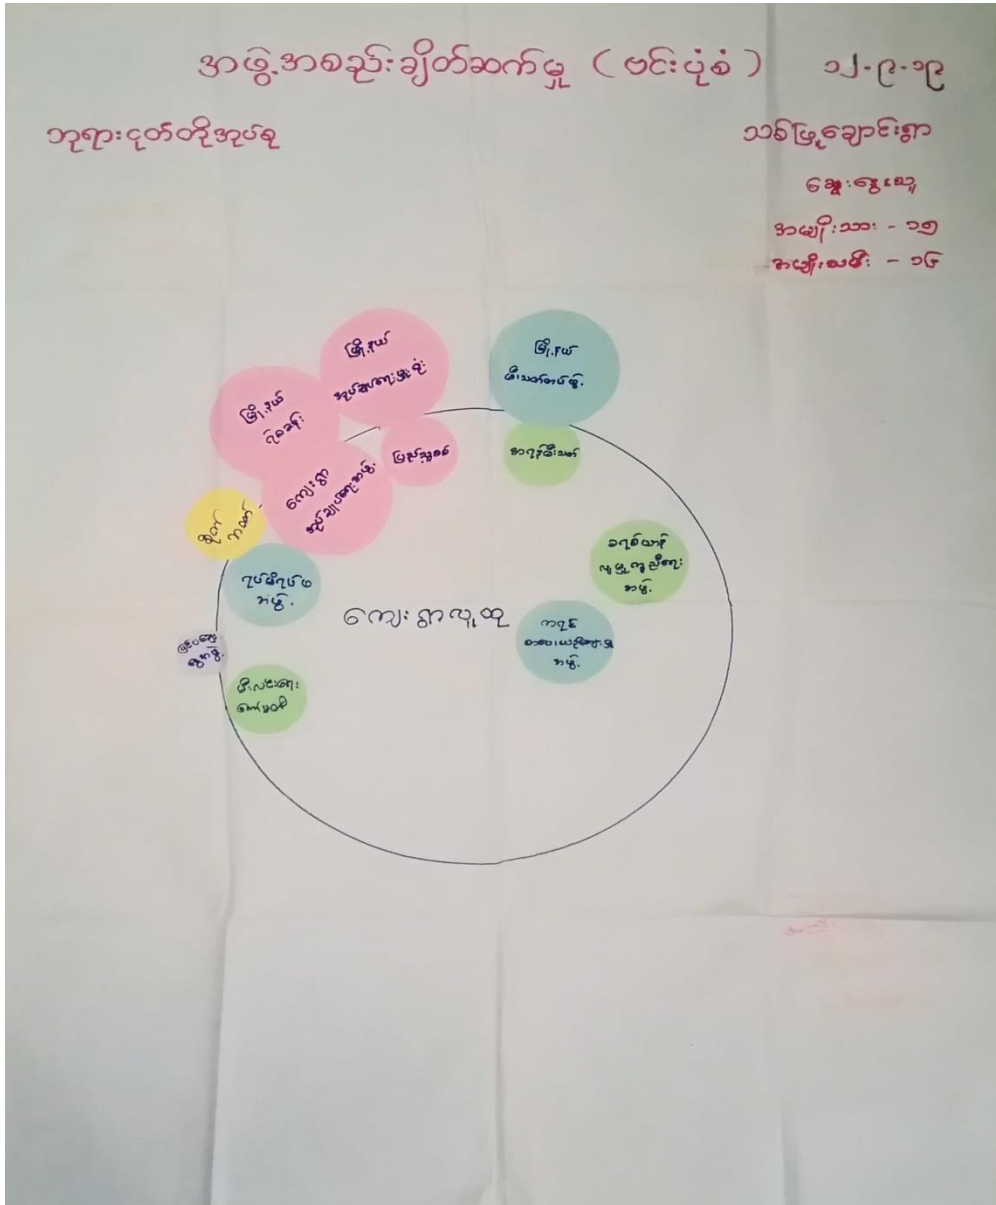 အဖွဲ့အစည်းချိတ်ဆက်မှု ( ဗင်းပုံစံ ) ၁၂-၉-၁၉
ဘုရားငုတ်တိုအုပ်စု
သစ်ဖြူချောင်းရွာ
ဆွေးနွေးသူ
အမျိုးသား - ၁၅
အမျိုးသမီး - ၁၆
မြို့နယ်
အုပ်ချုပ်ရေးမှူးရုံး
မြို့နယ်
မီးသတ်တပ်ဖွဲ့
မြို့နယ်
ရဲစခန်း
ပြည်သူ့စစ်
အရန်မီးသတ်
ကျေးရွာ
အုပ်ချုပ်ရေးအဖွဲ့
ရပ်မိရပ်ဖ
အဖွဲ့
ခရစ်ယာန်
လူမှုကူညီရေး
အဖွဲ့
ကျေးရွာလူထု
ကရင်
စာပေယဉ်ကျေးမှု
အဖွဲ့
မီးလင်းရေး
ကော်မတီ